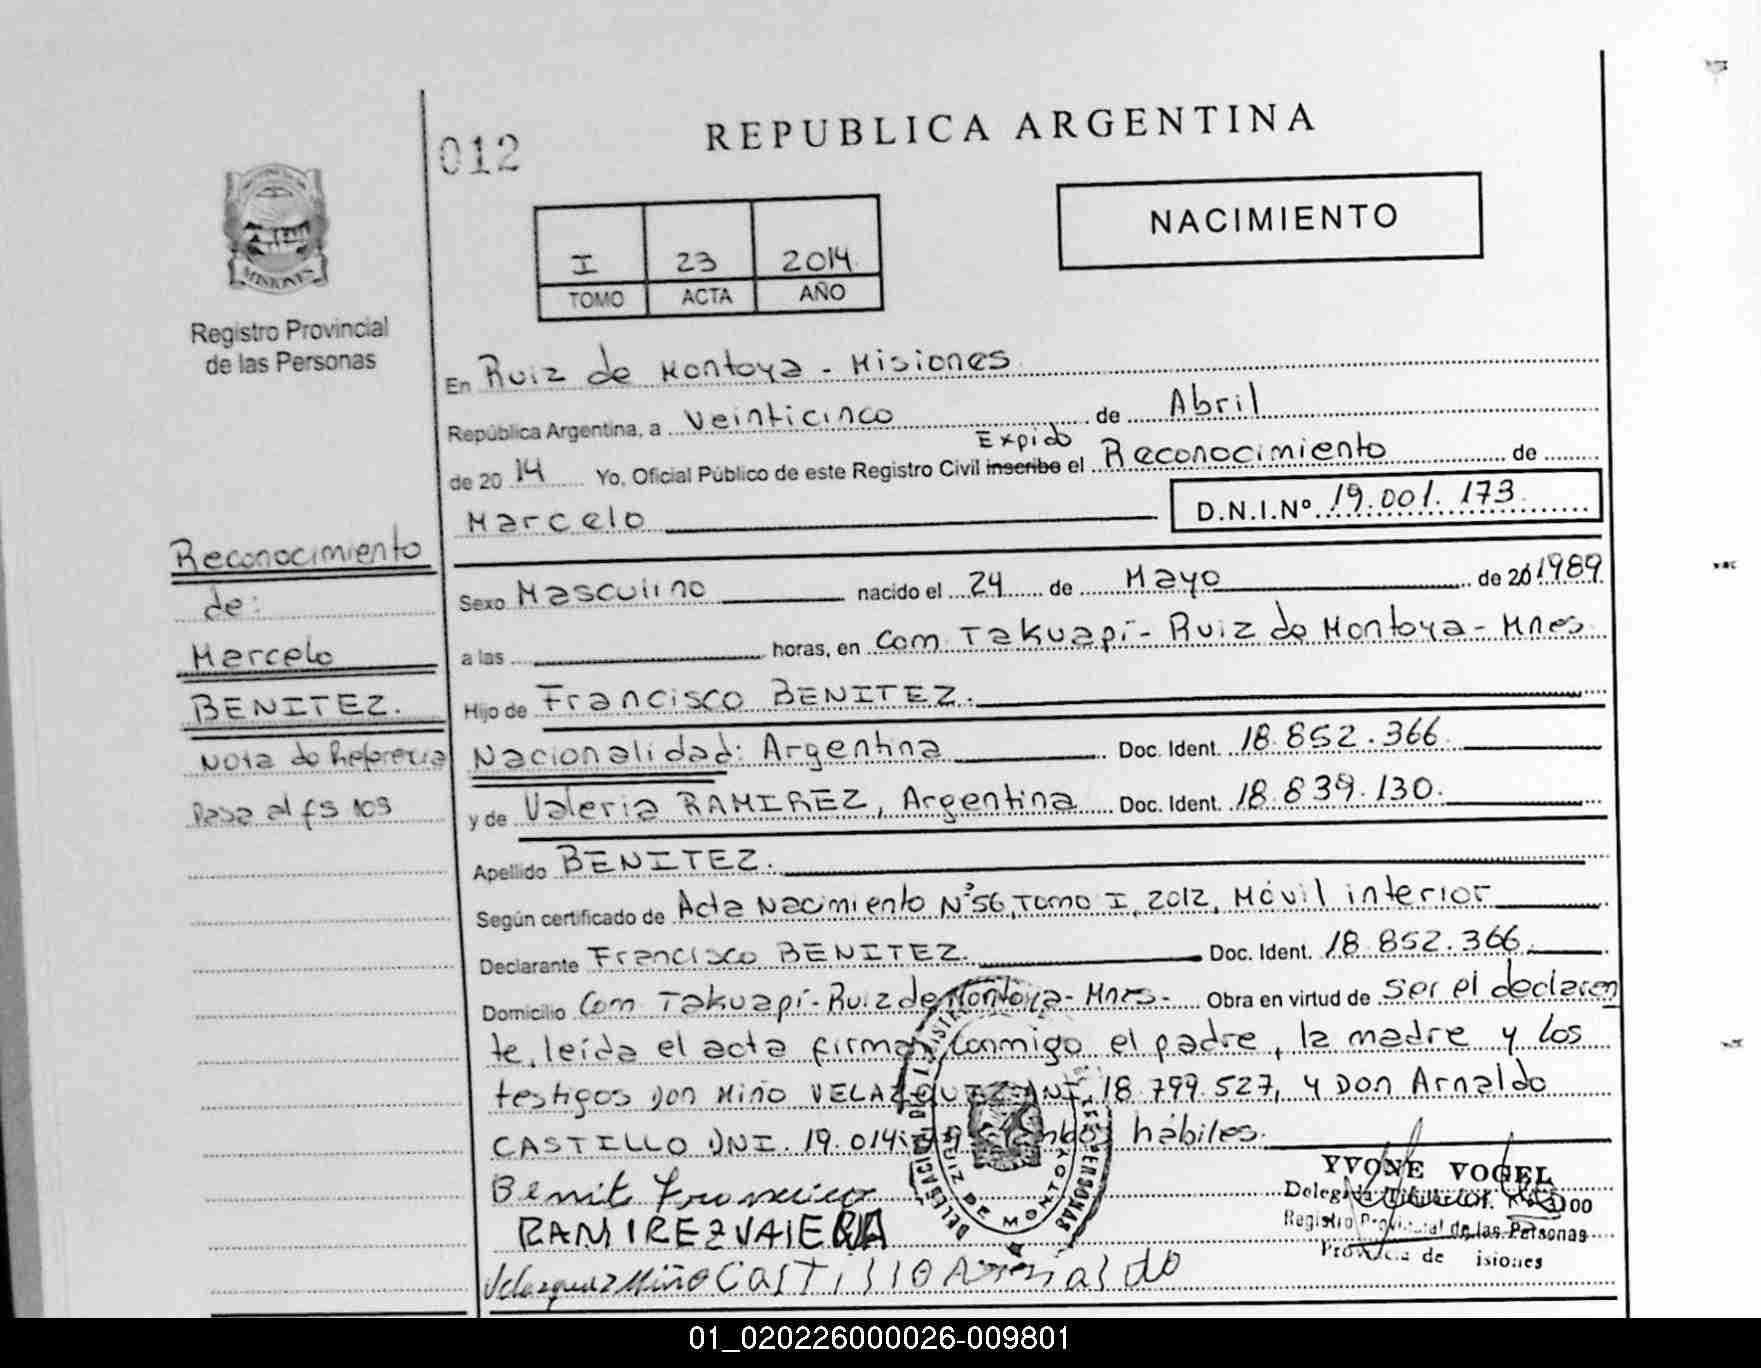 012
REPUBLICA ARGENTINA
NACIMIENTO
I 23 2014
TOMO ACTA AÑO
MISIONES
Registro Provincial
de las Personas
En Ruiz de Montoya - Misiones
República Argentina, a Veinticinco de Abril
Expido
de 20 14 Yo, Oficial Público de este Registro Civil inscribo el Reconocimiento de
Marcelo D.N.I.Nº 19.001.173
Sexo Masculino nacido el 24 de Mayo de 20 1989
a las horas, en Com Takuapí - Ruiz de Montoya - Mnes
Hijo de Francisco BENITEZ.
Nacionalidad: Argentina Doc. Ident. 18.852.366
y de Valeria RAMIREZ, Argentina Doc. Ident. 18.839.130.
Apellido BENITEZ.
Según certificado de Acta Nacimiento Nº56, Tomo I, 2012, Móvil interior
Declarante Francisco BENITEZ. Doc. Ident. 18.852.366.
Domicilio Com Takuapí - Ruiz de Montoya - Mnes - Obra en virtud de ser el declaran
te, leída el acta firman conmigo el padre, la madre y los
testigos Don Miño VELAZQUEZ DNI. 18.799.527, y Don Arnaldo
CASTILLO DNI. 19.014 hábiles.
Reconocimiento
de:
Marcelo
BENITEZ.
Nota de Referencia
Pasa al fs 103
Benit Francisco
RAMIREZ VALERIA
Velazquez Miño CASTILLO Arnaldo
RUIZ DE MONTOYA
YVONE VOGEL
Delegada Titular
Registro Provincial de las Personas
Provincia de isiones
01_020226000026-009801